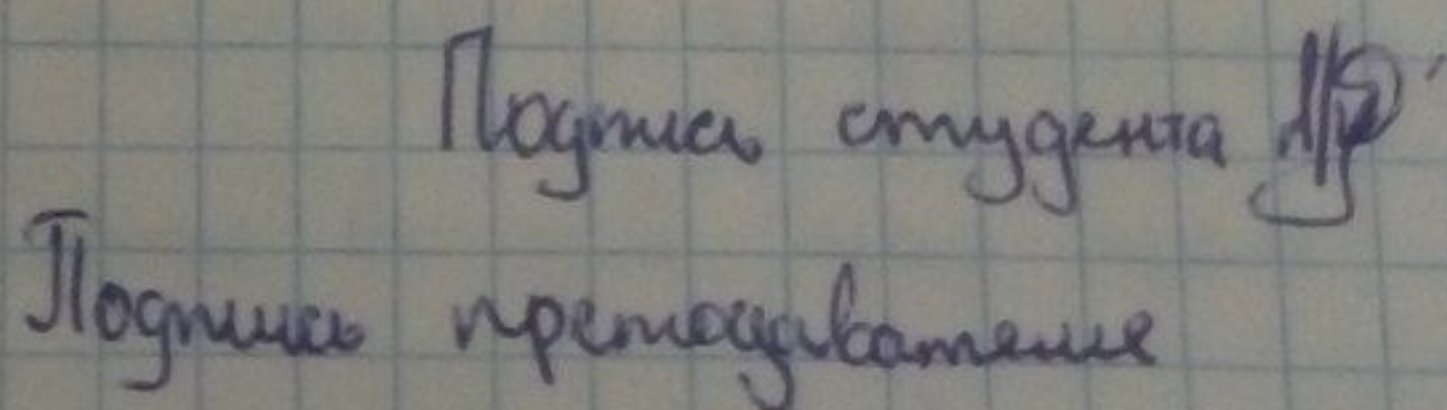 Подпись студента
Подпись преподавателя